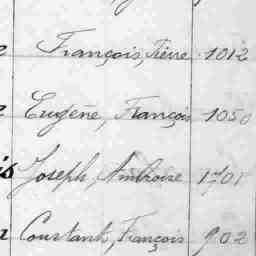 François, Pierre 1012
Eugène, François 1050
is Joseph, Ambroise 1701
Constant, François 902